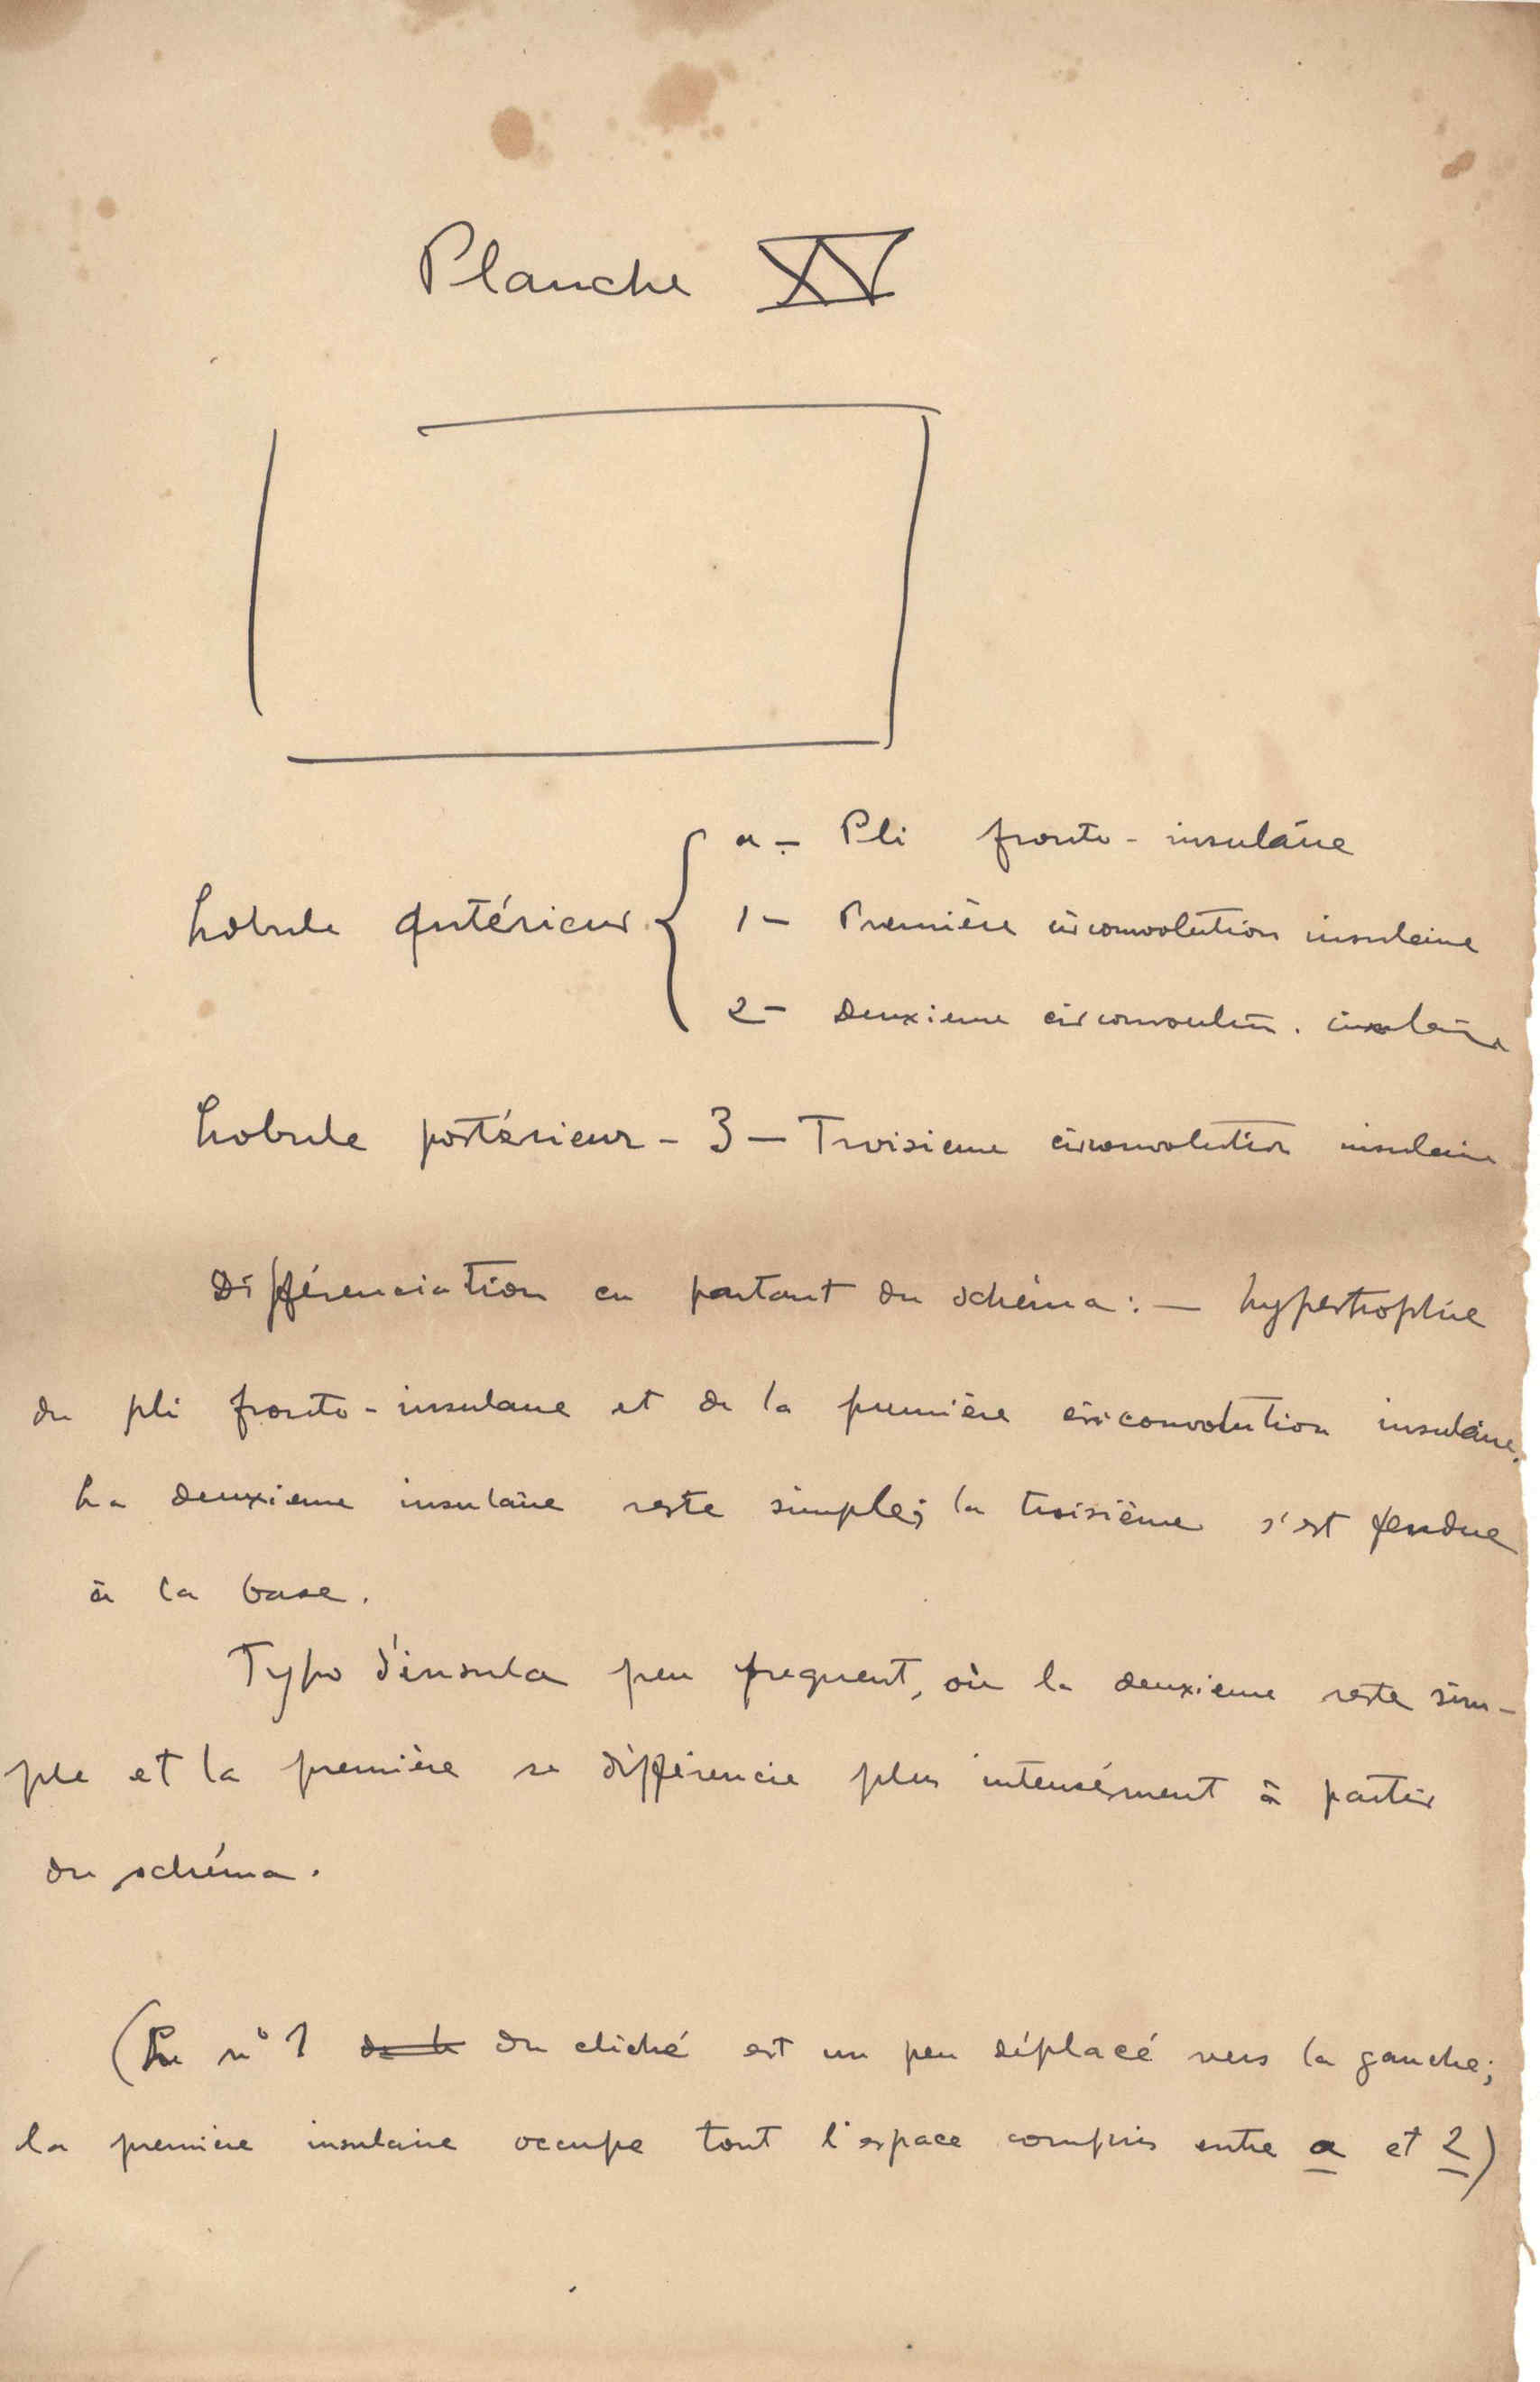 Planche XV
a - Pli fronto-insulaire
Lobule antérieur { 1 - Première circonvolution insulaire
2 - Deuxieme circonvolution. insulaire
Lobule postérieur - 3 - Troisieme circonvolution insulaire
Différenciation en partant du schéma: - hypertrophie
du pli fronto-insulaire et de la première circonvolution insulaire.
La deuxieme insulaire reste simple; la troisième s'est fendue
à la base.
Type d'insula peu frequent, où la deuxieme reste sim-
ple et la première se différencie plus intensément à partir
du schéma.
(Le nº 1 de la du cliché est un peu déplacé vers la gauche;
la premiere insulaire occupe tout l'espace compris entre a et 2)